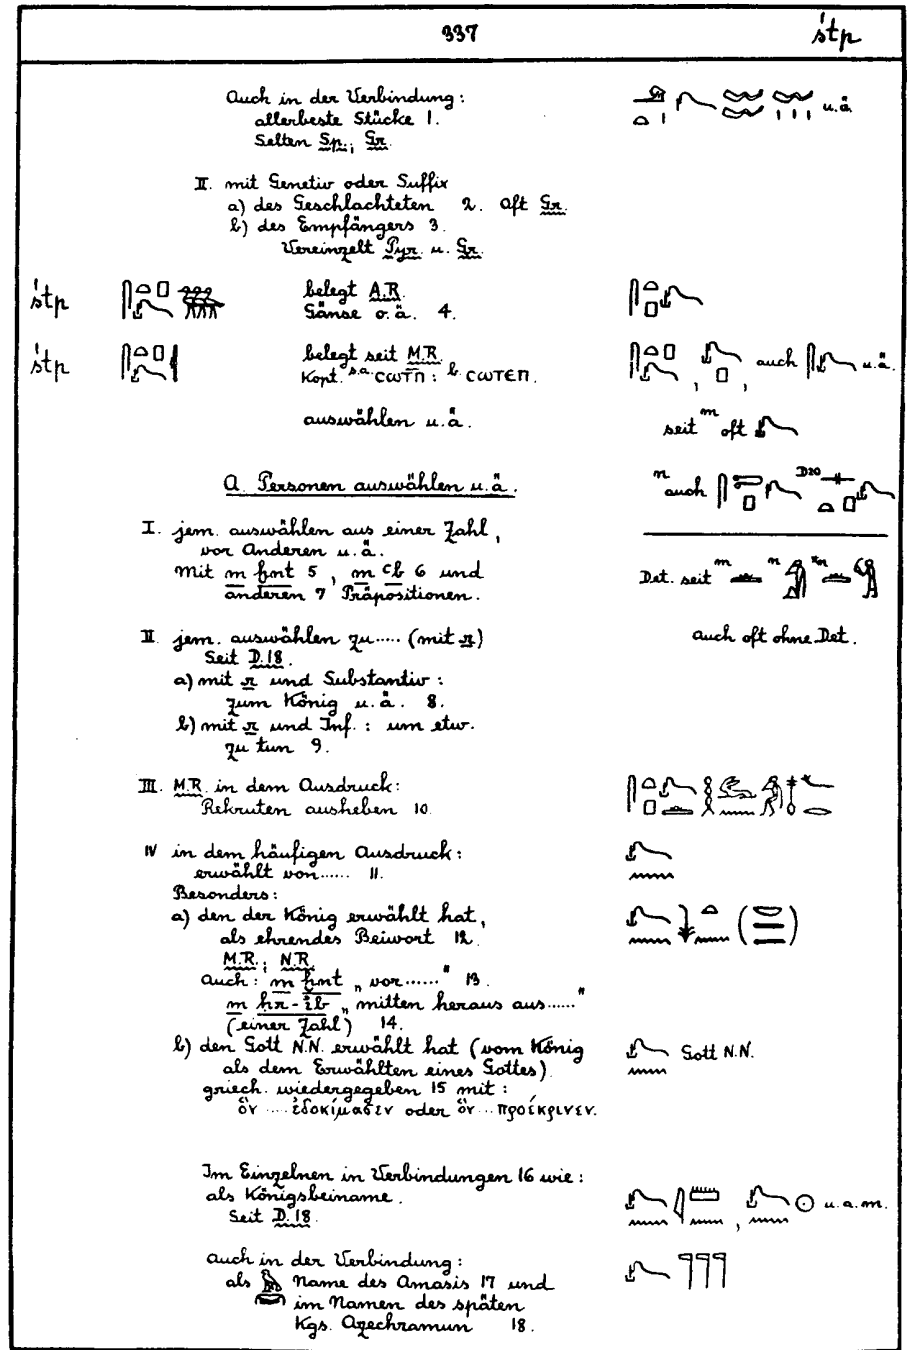 337 śtp
Auch in der Verbindung:
allerbeste Stücke 1. u.ä.
Selten Sp., Gr.
II. mit Genetiv oder Suffix
a) des Geschlachteten 2. Oft Gr.
b) des Empfängers 3.
Vereinzelt Pyr. u. Gr.
śtp belegt A.R.
Gänse o.ä. 4.
śtp belegt seit M.R.
Kopt. s.a. ⲥⲱⲧⲡ̄ : b. ⲥⲱⲧⲉⲡ. , , auch u.ä.
auswählen u.ä. seit m oft
A. Personen auswählen u.ä. n auch D20
I. jem. auswählen aus einer Zahl,
vor Anderen u.ä.
Mit m ḫnt 5, m ꜥb 6 und Det. seit m n *n
anderen 7 Präpositionen.
II. jem. auswählen zu..... (mit r) auch oft ohne Det.
Seit D.18.
a) mit r und Substantiv:
zum König u.ä. 8.
b) mit r und Inf.: um etw.
zu tun 9.
III. M.R. in dem Ausdruck:
Rekruten ausheben 10.
IV in dem häufigen Ausdruck:
erwählt von...... 11.
Besonders:
a) den der König erwählt hat,
als ehrendes Beiwort 12.
M.R.; N.R.
Auch: m ḫnt „vor......" 13
m ḥr-ib „mitten heraus aus....."
(einer Zahl) 14.
b) den Gott N.N. erwählt hat (vom König Gott N.N.
als dem Erwählten eines Gottes).
griech. wiedergegeben 15 mit:
ὃν .... ἐδοκίμασεν oder ὃν ... προέκρινεν.
Im Einzelnen in Verbindungen 16 wie:
als Königsbeiname. , u.a.m.
Seit D.18.
auch in der Verbindung:
als Name des Amasis 17 und
im Namen des späten
Kgs. Azechramun 18.